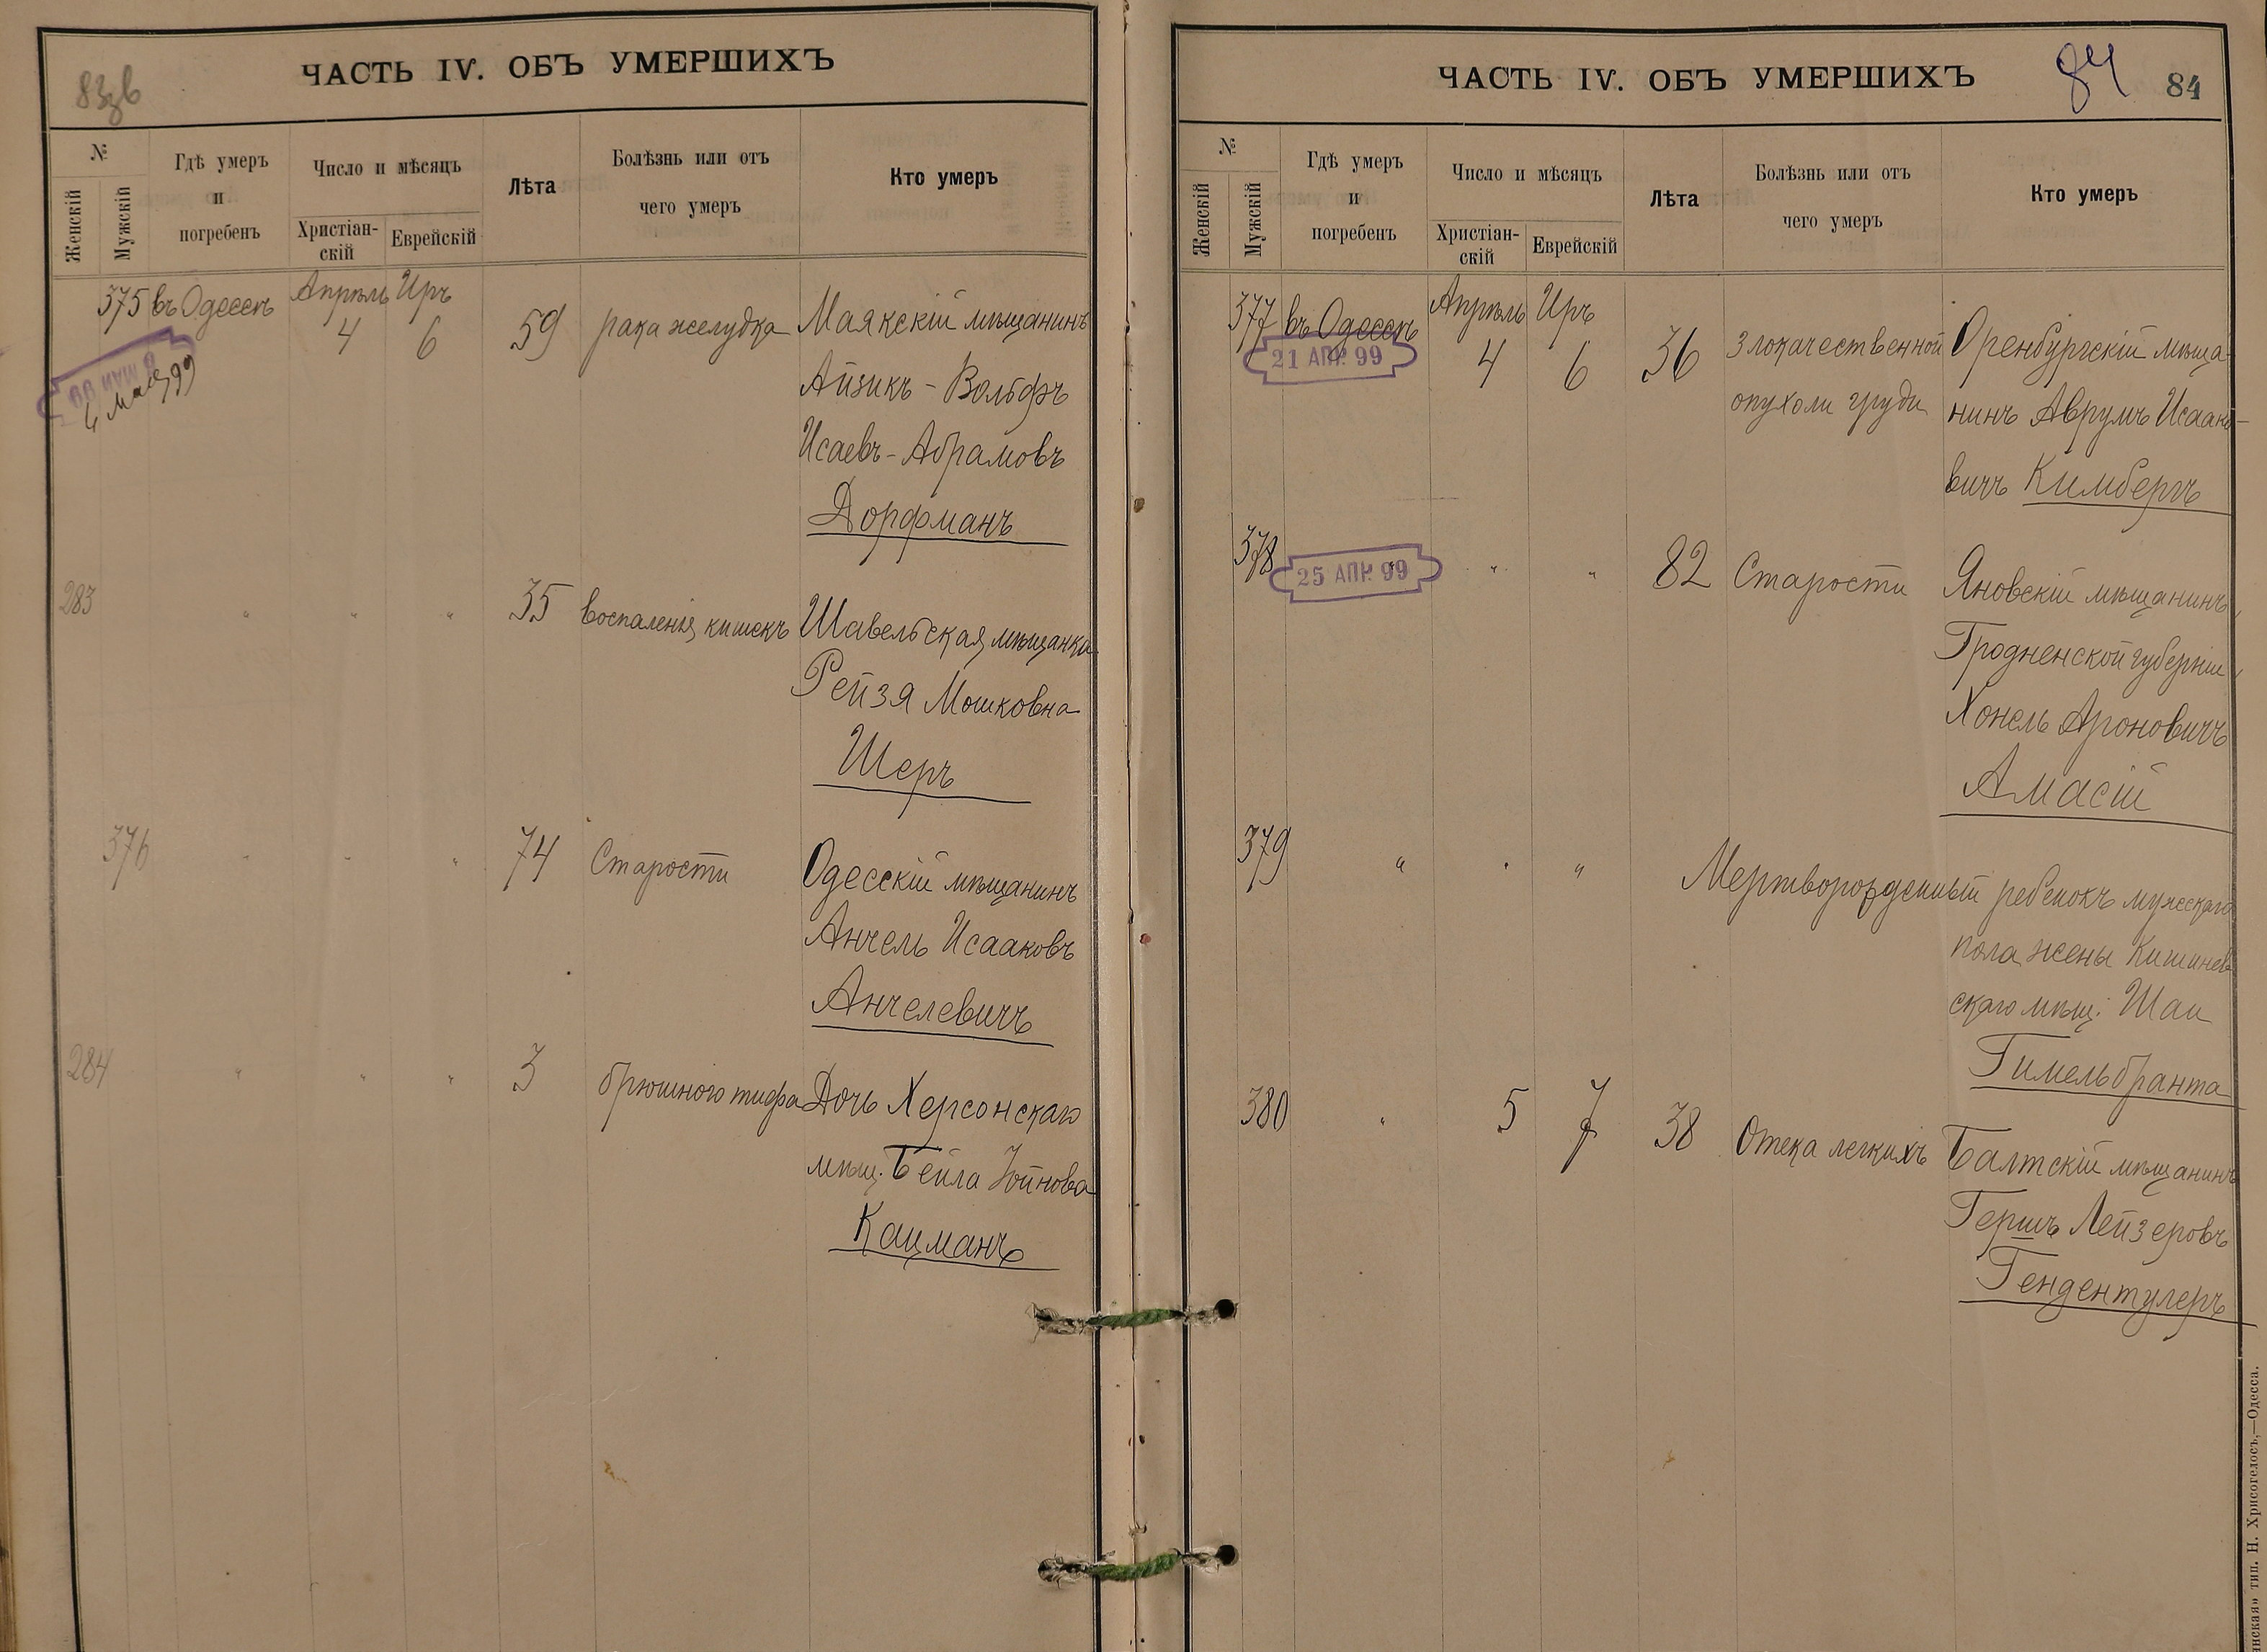 83зв
ЧАСТЬ IV. ОБЪ УМЕРШИХЪ
№
Женскій
Мужскій
Гдѣ умеръ
и
погребенъ
Число и мѣсяцъ
Христіан-
скій
Еврейскій
Лѣта
Болѣзнь или отъ
чего умеръ
Кто умеръ
375 въ Одессѣ Апрѣль 4 Иръ 6 59 рака желудка Маякскій мѣщанинъ
Айзикъ - Вольфъ
Исаевъ - Абрамовъ
Дорфманъ
8 МАЯ 99
4 мая 99
283 " " " 35 воспаленія кишекъ Шавельская мѣщанка
Рейзя Мошковна
Шеръ
376 " " " 74 Старости Одесскій мѣщанинъ
Анчель Исааковъ
Анчелевичъ
284 " " " 3 брюшного тифа Дочь Херсонскаго
мѣщ. Бейла Іойнова
Кацманъ
ЧАСТЬ IV. ОБЪ УМЕРШИХЪ
84
84
№
Женскій
Мужскій
Гдѣ умеръ
и
погребенъ
Число и мѣсяцъ
Христіан-
скій
Еврейскій
Лѣта
Болѣзнь или отъ
чего умеръ
Кто умеръ
377 въ Одессѣ Апрѣль 4 Иръ 6 36 Злокачественной Оренбургскій мѣща-
опухоли груди нинъ Аврумъ Исаако-
вичъ Кимбергъ
21 АПР. 99
378 " " " 82 Старости Яновскій мѣщанинъ,
25 АПР. 99
Гродненской губерніи,
Хонель Ароновичъ
Амасій
379 " " " Мертворожденный ребенокъ мужескаго
пола жены Кишинев
скаго мѣщ. Шаи
Гимельбранта
380 " 5 7 38 Отека легкихъ Балтскій мѣщанинъ
Гершъ Лейзеровъ
Гендентулеръ
тип. Н. Хрисогелосъ,—Одесса.